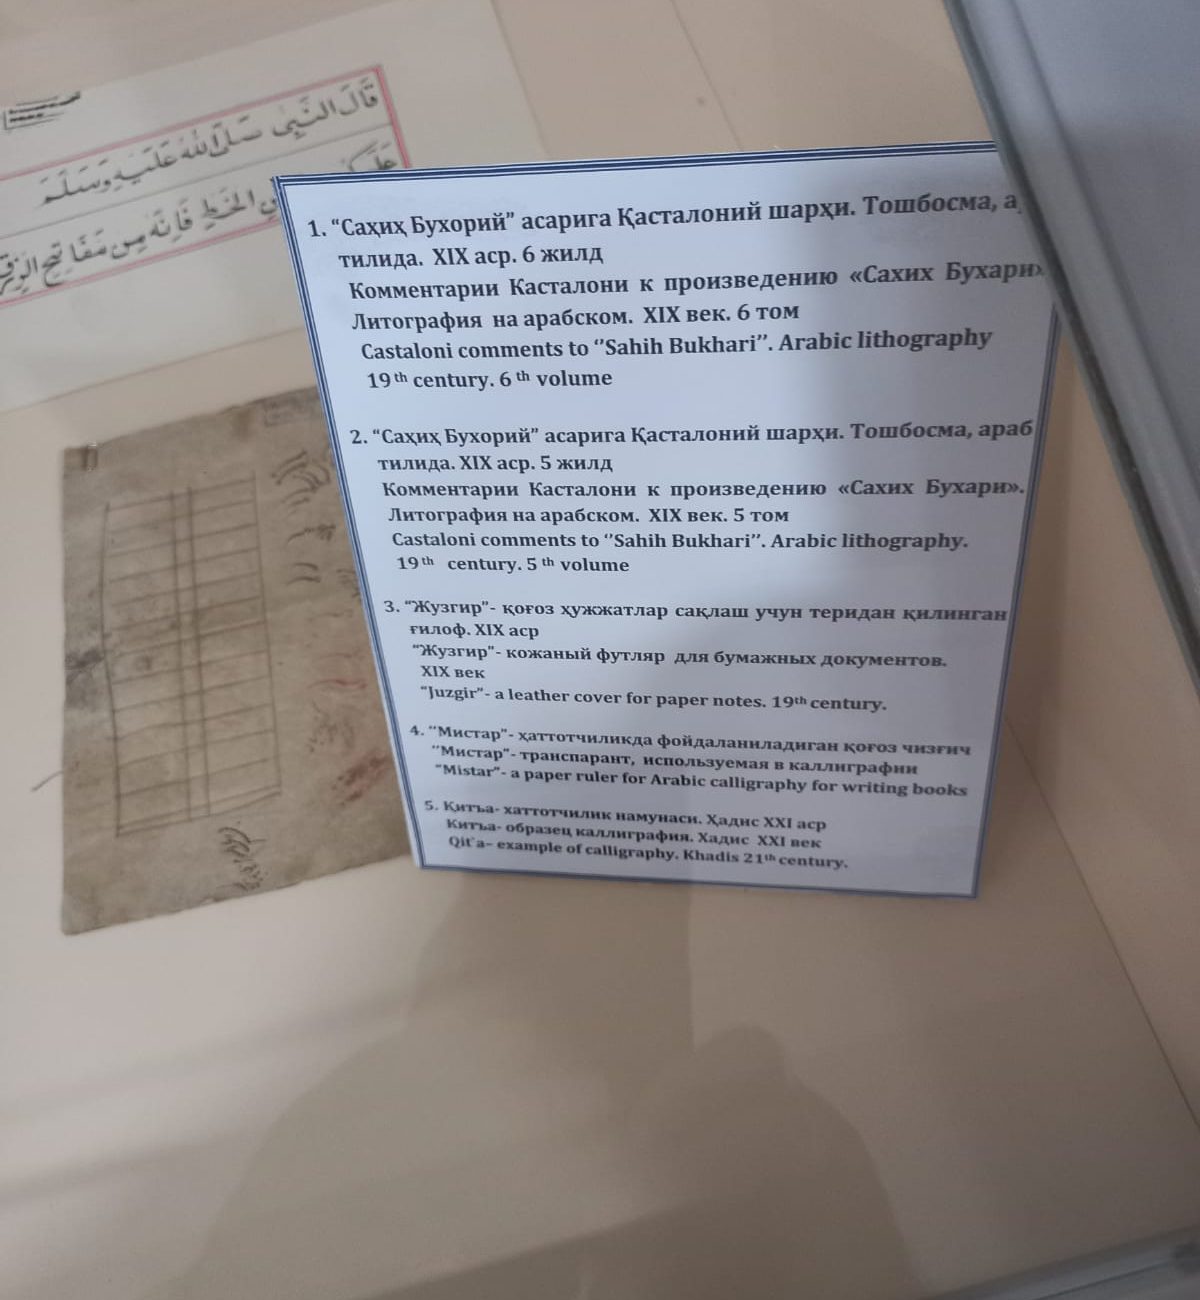 قَالَ النَّبِيُّ صَلَّى اللهُ عَلَيْهِ وَسَلَّمَ
الخَطِّ فَإِنَّهُ مِنْ مَفَاتِيحِ الرِّزْقِ
1. “Саҳиҳ Бухорий” асарига Қасталоний шарҳи. Тошбосма, а
тилида. XIX аср. 6 жилд
Комментарии Касталони к произведению «Сахих Бухари»
Литография на арабском. XIX век. 6 том
Castaloni comments to “Sahih Bukhari”. Arabic lithography
19 th century. 6 th volume
2. “Саҳиҳ Бухорий” асарига Қасталоний шарҳи. Тошбосма, араб
тилида. XIX аср. 5 жилд
Комментарии Касталони к произведению «Сахих Бухари».
Литография на арабском. XIX век. 5 том
Castaloni comments to “Sahih Bukhari”. Arabic lithography.
19 th century. 5 th volume
3. “Жузгир”- қоғоз ҳужжатлар сақлаш учун теридан қилинган
ғилоф. XIX аср
“Жузгир”- кожаный футляр для бумажных документов.
XIX век
“Juzgir”- a leather cover for paper notes. 19th century.
4. “Мистар”- ҳаттотчиликда фойдаланиладиган қоғоз чизғич
“Мистар”- транспарант, используемая в каллиграфии
“Mistar”- a paper ruler for Arabic calligraphy for writing books
5. Қитъа- хаттотчилик намунаси. Ҳадис XXI аср
Китъа- образец каллиграфия. Хадис XXI век
Qit`a– example of calligraphy. Khadis 21th century.